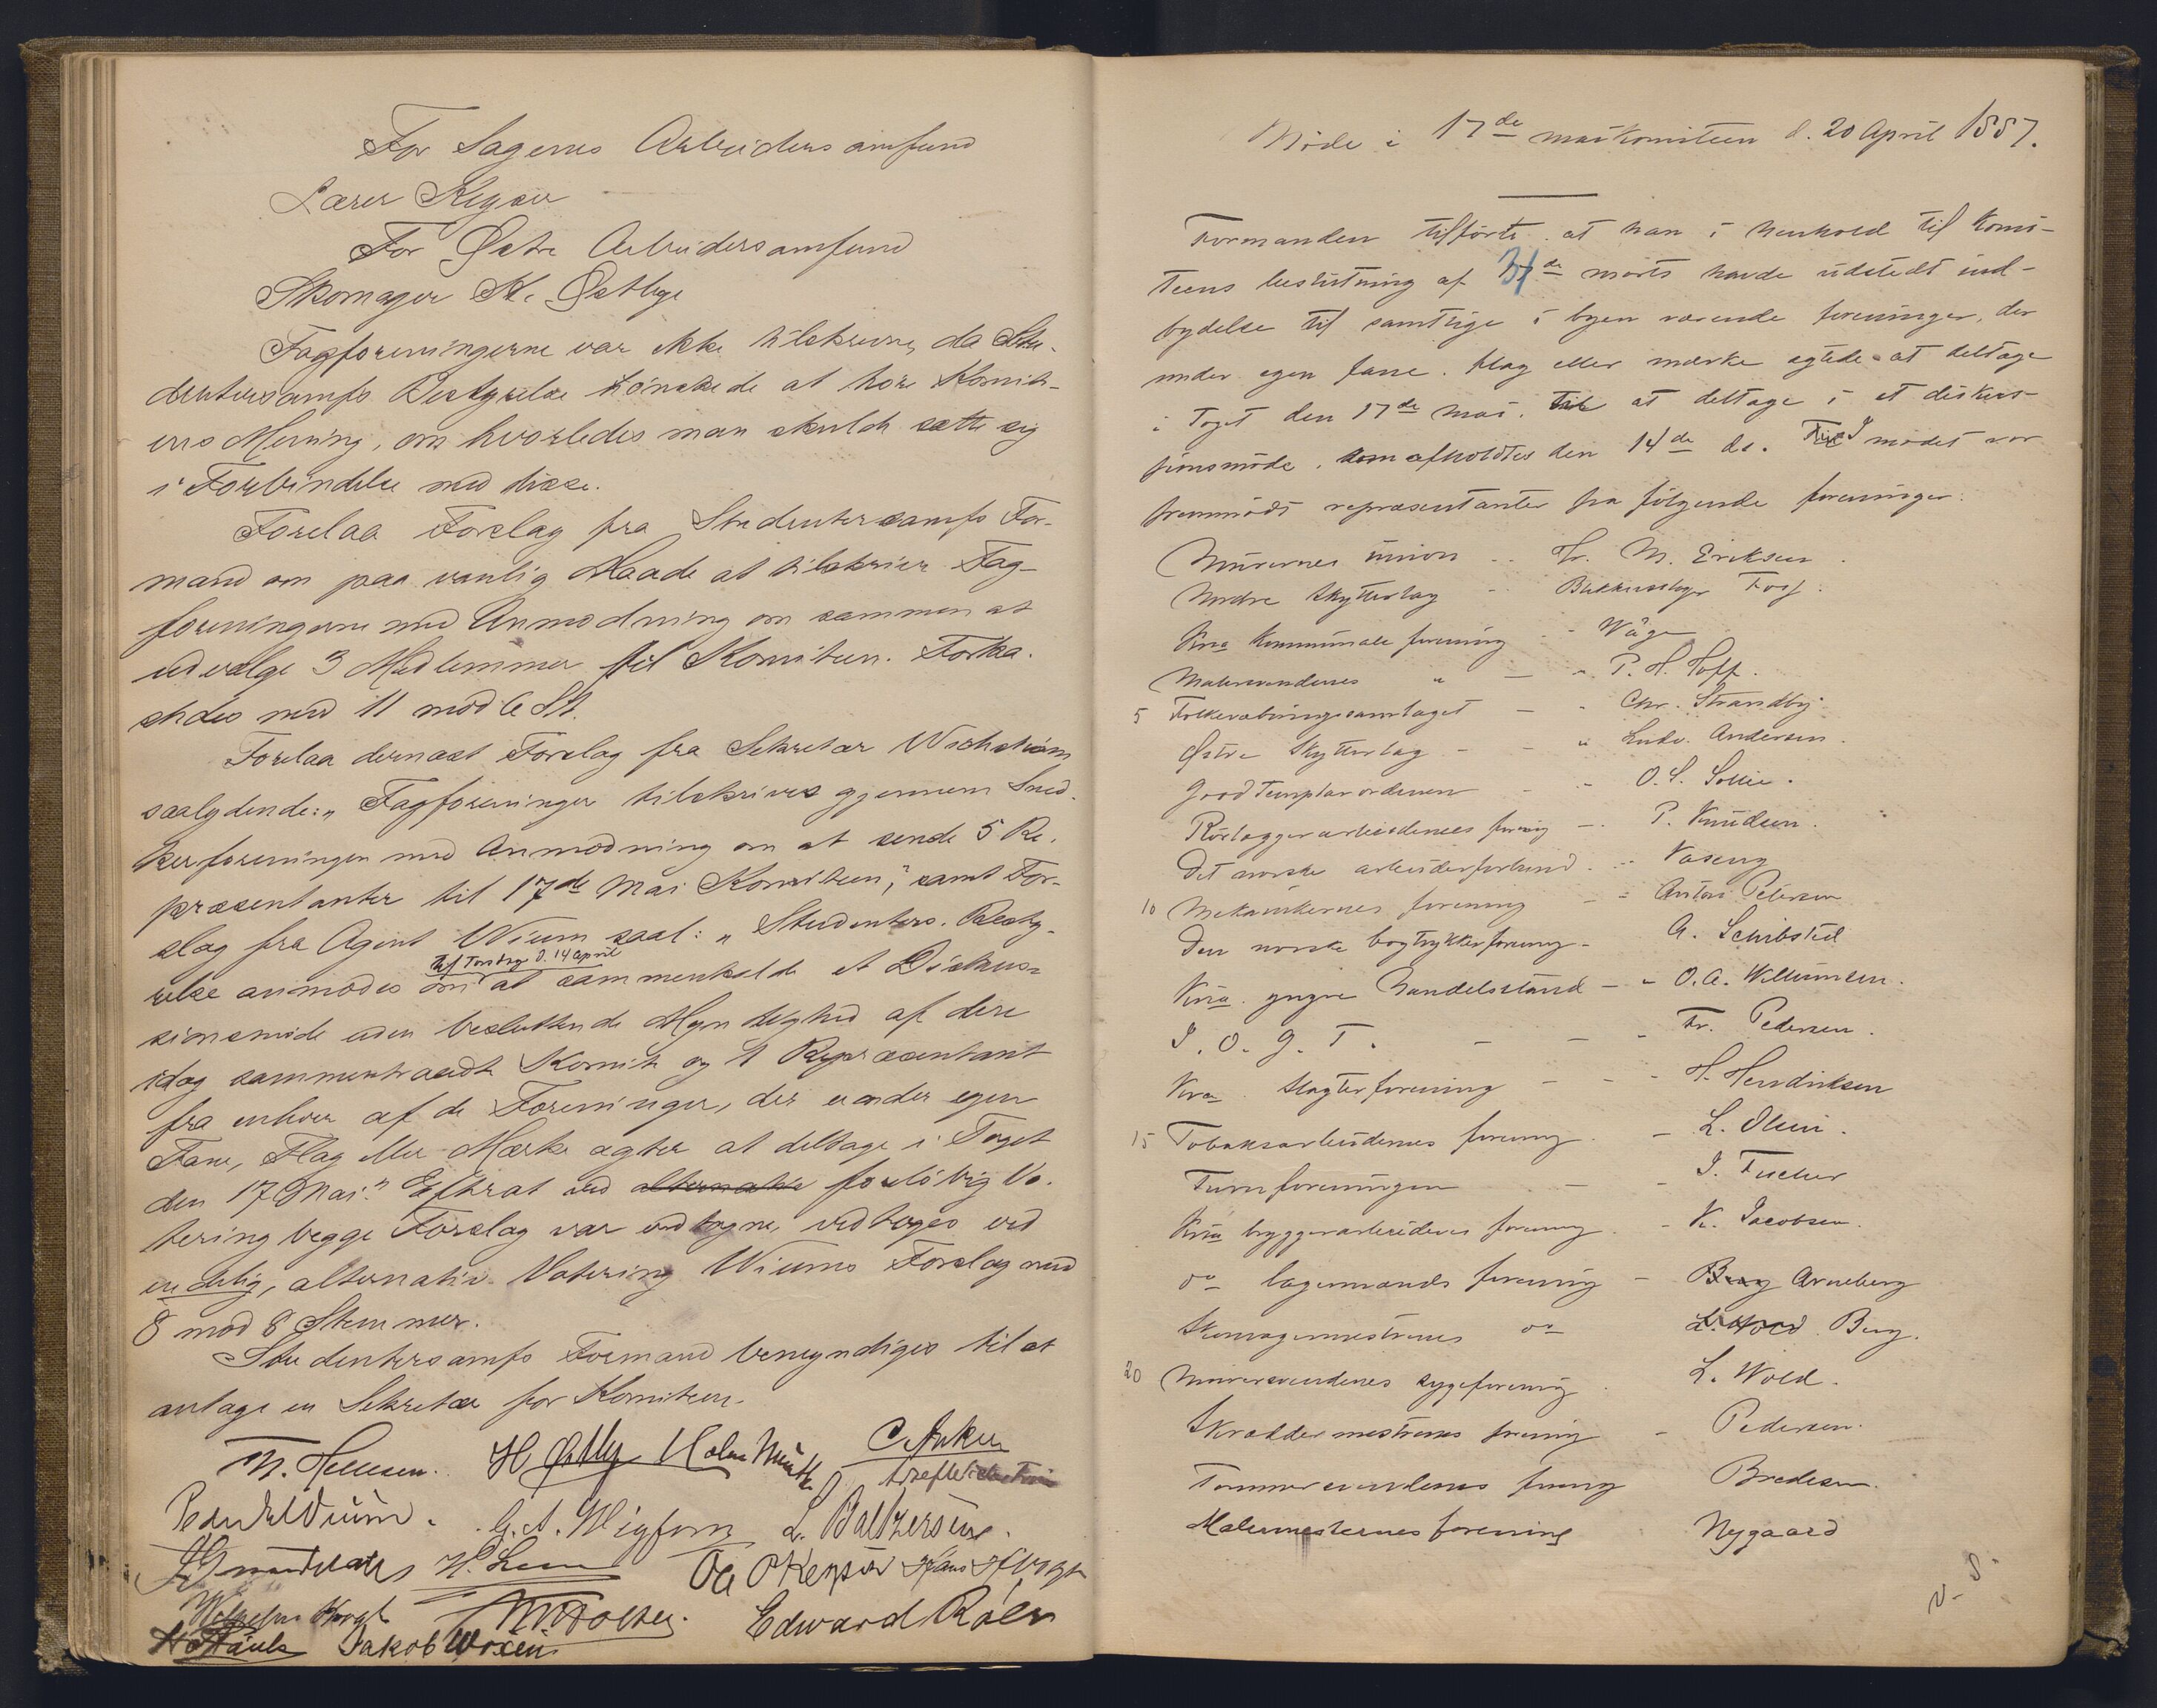 For Sagenes Arbeidersamfund
Lærer Keyser
For Østre Arbeidersamfund
Skomager K. Østbye
Fagforeningerne var ikke tilskrevne, da Stu-
dentersamfs Bestyrelse ønskede at høre Komite-
ens Mening, om hvorledes man skulde sætte sig
i Forbindelse med disse.
Forelaa Forslag fra Studentersamfs For-
mand om paa vanlig Maade at tilskrive Fag-
foreningerne med Anmodning om sammen at
udvælge 3 Medlemmer til Komiteen. Forka-
stedes med 11 mod 6 St.
Forelaa dernæst Forslag fra Sekretær Wichstrøm
saalydende: „Fagforeninger tilskrives gjennem Sned-
kerforeningen med Anmodning om at sende 5 Re-
præsentanter til 17de Mai Komiteen", samt For-
slag fra Agent Wium saal: „Studenters. Besty-
til Torsdag d. 14 april
relse anmodes om at sammenkalde et Diskus-
sionsmøde uden besluttende Myndighed af den
idag sammentraadte Komite og 1 Repræsentant
fra enhver af de Foreninger, der under egen
Fane, Flag eller Mærke agter at deltage i Toget
den 17 Mai." Efterat ved alternativ foreløbig Vo-
tering begge Forslag var antagne, vedtoges ved
endelig, alternativ Votering Wiums Forslag med
8 mod 8 Stemmer.
Studentersamfs Formand bemyndiges til at
antage en Sekretær for Komiteen.
M. Hellesen. H Østby Holm Munthe C Anker
L. Baltzersen.
H. Lem Ole O Keyser Hans H Vogt
Wilhelm Krogh Edward Röer
Jakob Woxen
Møde i 17de maikomiteen d. 20 April 1887.
Formanden tilførte at han i henhold til komi-
teens beslutning af 31de marts havde udstedt ind-
bydelse til samtlige i byen værende foreninger, der
under egen fane, flag eller mærke agtede at deltage
i toget den 17de mai, til at deltage i et diskus-
sionsmøde, som afholdtes den 14de ds. I mødet var
fremmødt repræsentanter fra følgende foreninger:
Murernes union - Hr. M. Eriksen
Nordre Skytterlag - Bøkkerslager Foss
Kria kommunale forening - Våge
Malersvendenes " - " P. H. Hoff.
5 Folkevæbningssamlaget - " Chr. Strandby
Østre Skytterlag - " Ludv. Andersen.
Good Templar ordenen - - O. S. Sollie.
Rørlæggerarbeidernes foreng - P. Knudsen.
Det norske arbeiderforbund - Vaseng
10 Mekanikernes forening - - Anton Petersen
Den norske bogtrykkerforening - A. Schibsted
Kria. yngre handelsstand - " O. A. Willumsen.
I. O. G. T. - - - Fr. Pedersen.
Kra. slagterforening - - - H. Hendriksen
15 Tobaksarbeidernes forening - L. Olsen.
Turnforeningen - - I. Fischer
Kria bryggeriarbeideres forening - K. Jacobsen.
do lagermands forening - Berg Arneberg
Skomagermestrenes do L. Wold Berg.
20 Murersvendenes sygeforening L. Wold.
Skræddermestrenes forening - Pedersen.
Tømmersvendenes foreng Bredesen.
Malermesternes forening Nygaard
V. S.